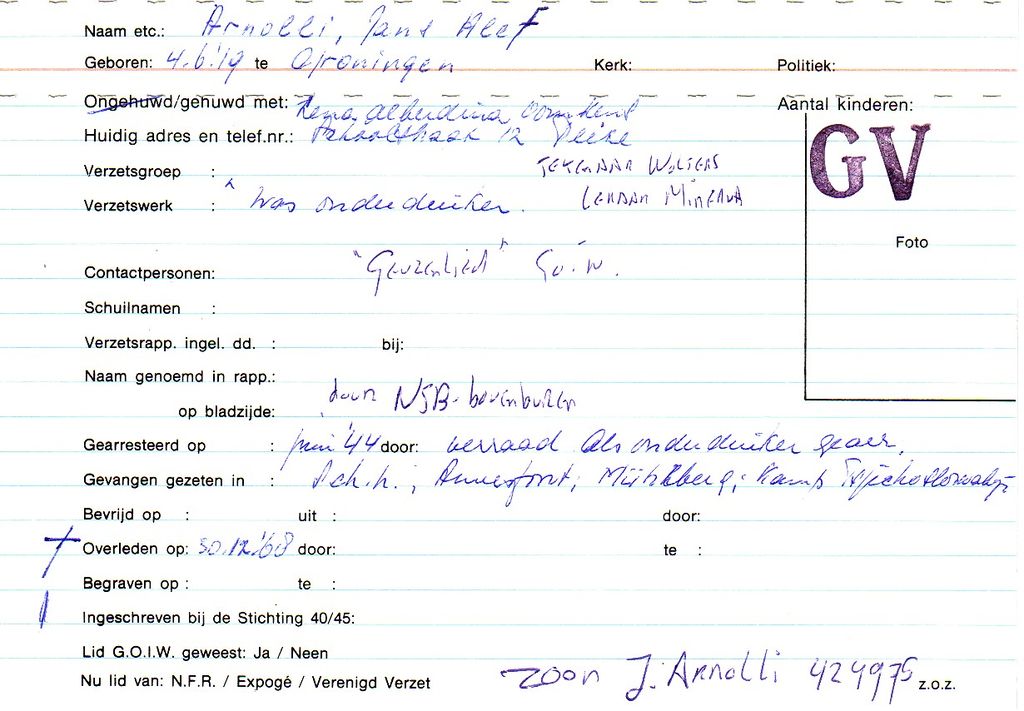 Naam etc.: Arnolli, Jans Alef
Geboren: 4.6.'19 te Groningen Kerk: Politiek:
Ongehuwd/gehuwd met: Alberdina Aantal kinderen:
Huidig adres en telef.nr.: 12
GV
Verzetsgroep : TEKENAAR WOLTERS
Verzetswerk : Was onderduiker. LERAAR MINERVA
Foto
Contactpersonen: "Geuzenlied"
Schuilnamen :
Verzetsrapp. ingel. dd. : bij:
Naam genoemd in rapp.:
op bladzijde: door NSB-bovenburen
Gearresteerd op : juni '44 door: verraad als onderduiker gearr.
Gevangen gezeten in : Sch.h.; Amersfoort; Mühlberg; Kamp
Bevrijd op : uit : door:
Overleden op: 30.12.'68 door: te :
Begraven op : te :
Ingeschreven bij de Stichting 40/45:
Lid G.O.I.W. geweest: Ja / Neen
Nu lid van: N.F.R. / Expogé / Verenigd Verzet zoon J. Arnolli 424975 z.o.z.